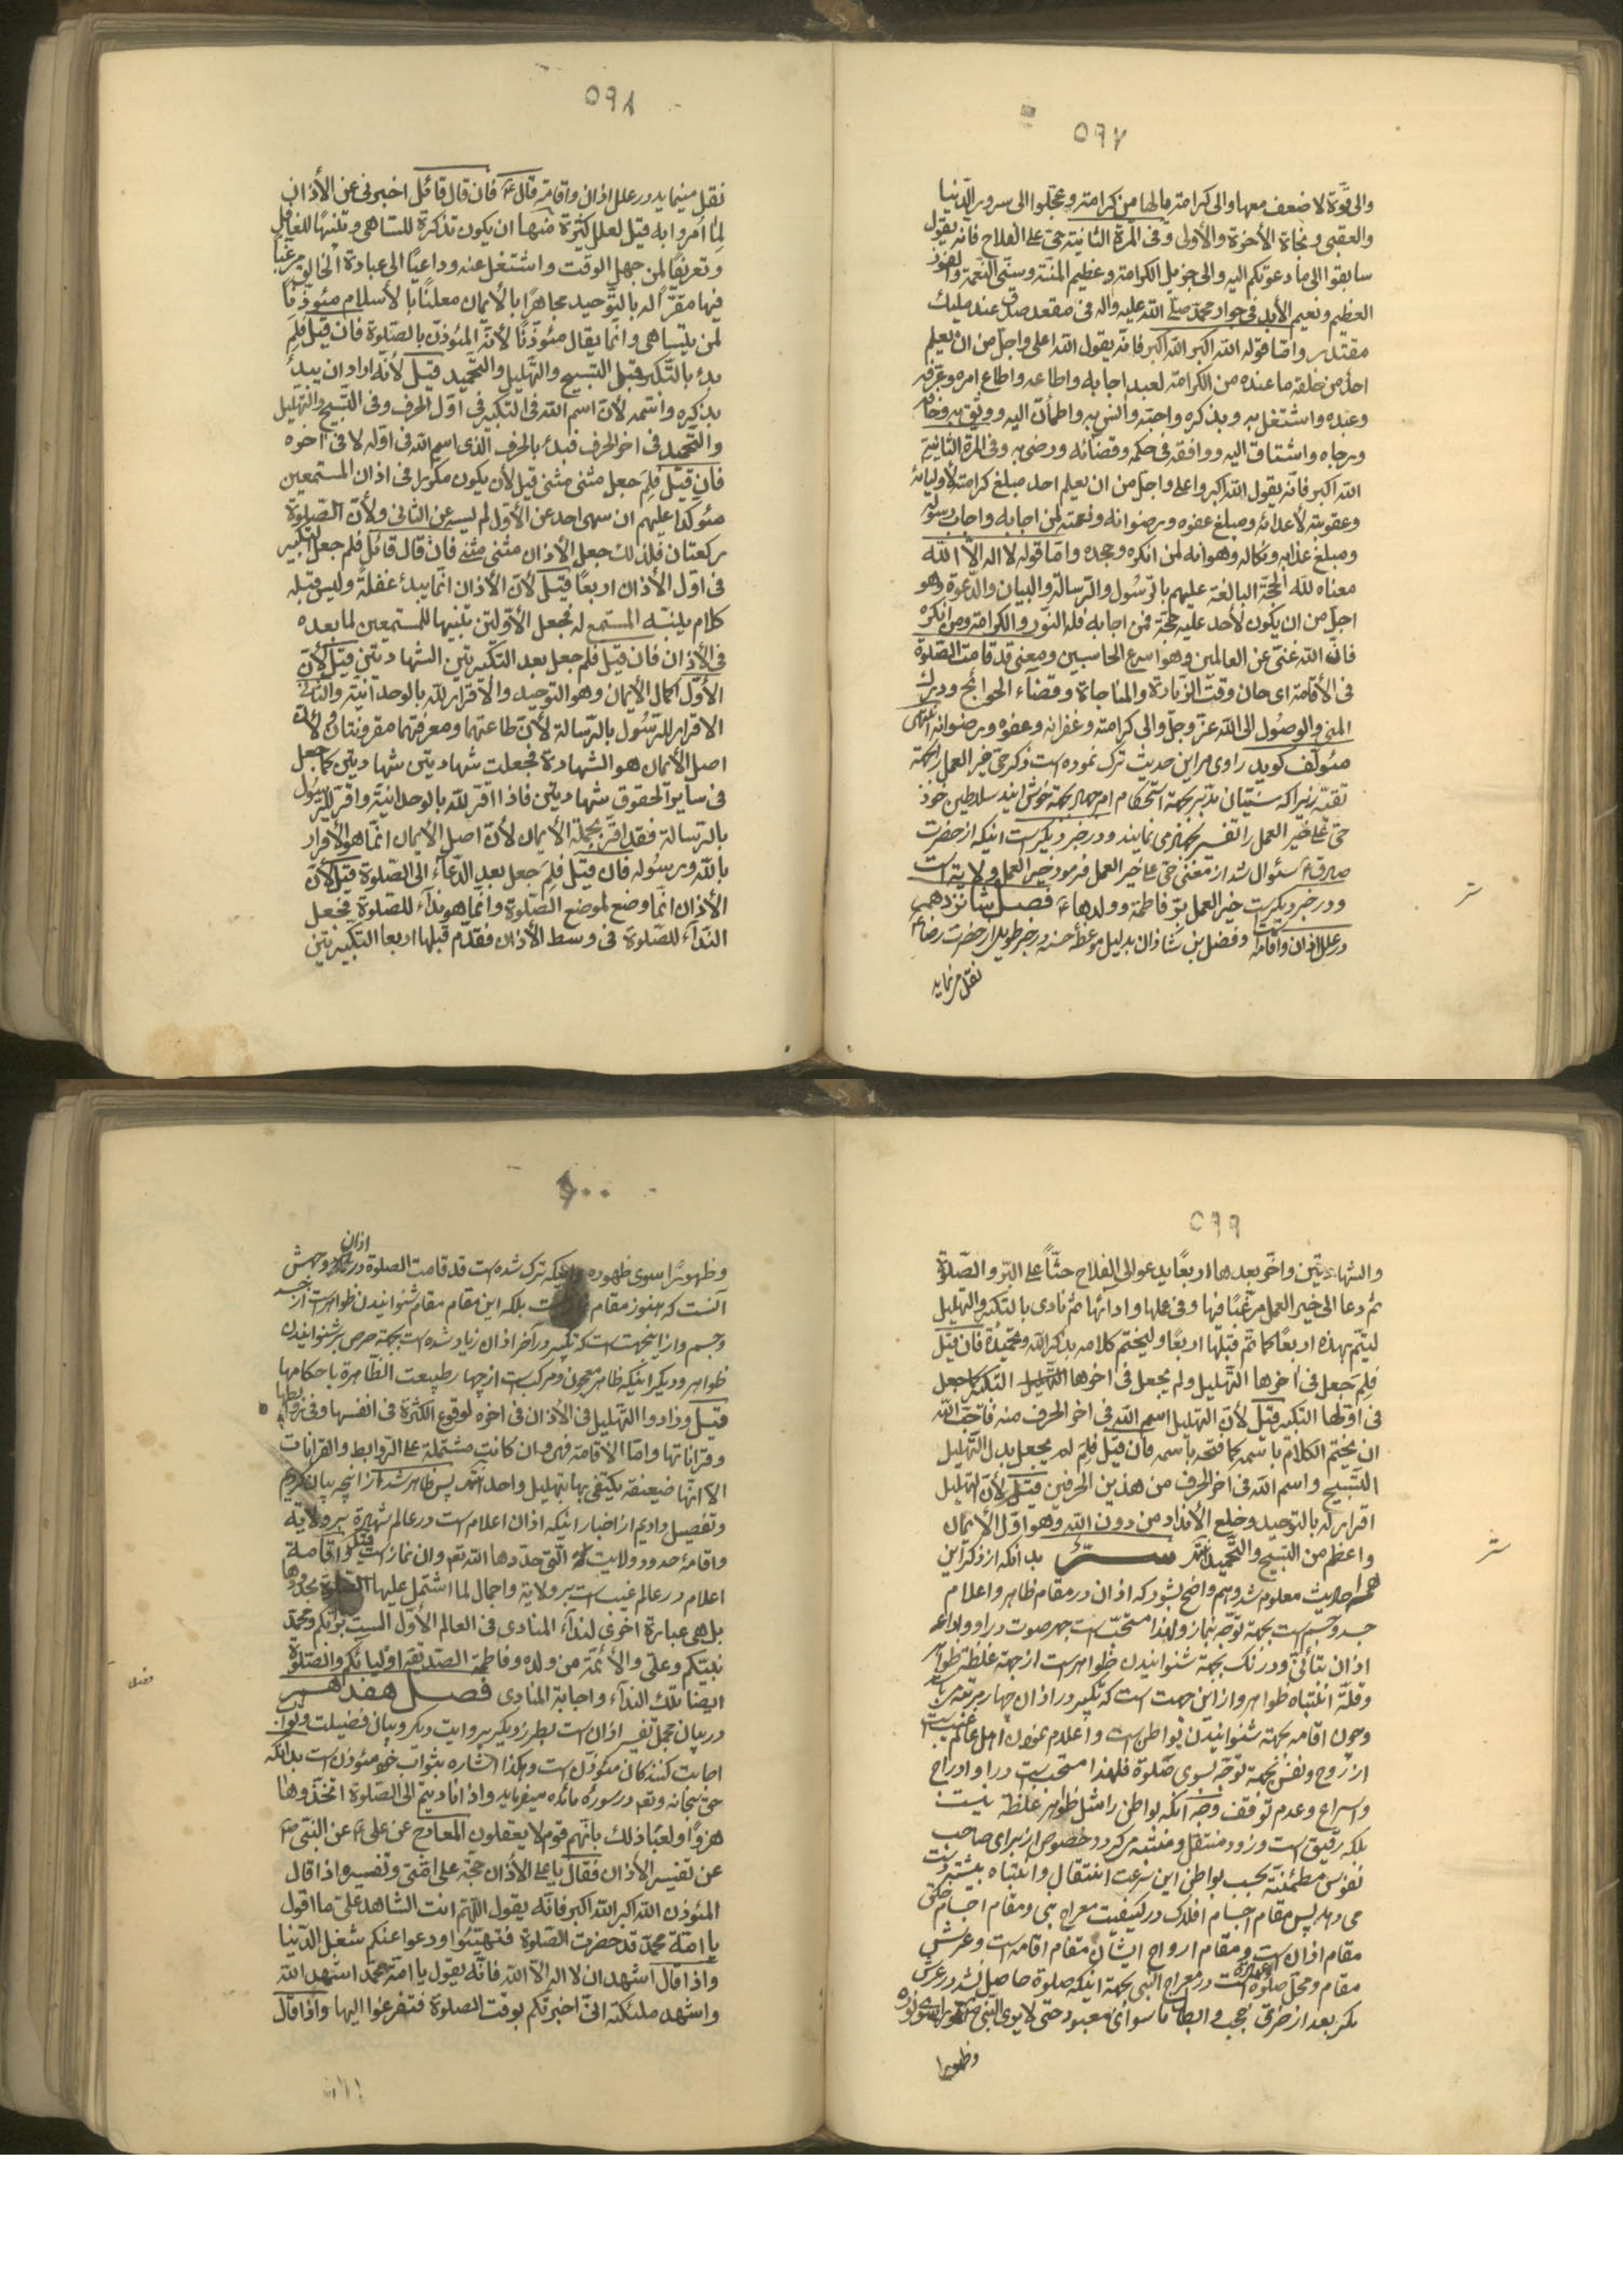 ۵۹۷
والی قوة لا ضعف معها والی کرامة مالها من کرامته وعجلوا الی سرور الدنیا
والعقبی ونجاة الأخرة والأولی وفی المرة الثانیة حی علی الفلاح فانه یقول
سابقوا الی ما دعوتکم الیه والی جزیل الکرامة وعظیم المنة وسنی النعمة والفوز
العظیم ونعیم الأبد فی جوار محمد صلی الله علیه واله فی مقعد صدق عند ملیك
مقتدر واما قوله الله اکبر الله اکبر فانه یقول الله اعلی واجل من ان یعلم
احد من خلقه ما عنده من الکرامة لعبد اجابه واطاعه واطاع امره وعرفه
وعبده واشتغل به وبذکره واحبه وانس به واطمأن الیه ووثق به وخافه
ورجاه واشتاق الیه ووافقه فی حکمه وقضائه ورضی به وفی المرة الثانیة
الله اکبر فانه یقول الله اکبر واعلی واجل من ان یعلم احد مبلغ کرامته لأولیائه
وعقوبته لأعدائه ومبلغ عفوه ورضوانه ونعمته لمن اجابه واجاب رسوله
ومبلغ عذابه ونکاله وهوانه لمن انکره وجحده واما قوله لا اله الا الله
معناه لله الحجة البالغة علیهم بالرسول والرسالة والبیان والدعوة وهو
اجل من ان یکون لأحد علیه حجة فمن اجابه فله النور والکرامة ومن انکره
فان الله غنی عن العالمین وهو اسرع الحاسبین ومعنی قد قامت الصلوة
فی الأقامة ای حان وقت الزیارة والمناجاة وقضاء الحوائج ودرك
المنی والوصول الی الله عز وجل والی کرامته وغفرانه وعفوه ورضوانه انتهی
مئولف کوید راوی مر این حدیث ترک نموده است ذکر حی خیر العمل را بجهة
تقیه زیرا که سنیان بجهة استحکام امر بجهة خوش ایند سلاطین خود
حی علی خیر العمل را تفسیر می نمایند ودر خبر دیکر است اینکه از حضرت
صادق ع سئوال شد از معنی حی علی خیر العمل فرمود خیر العمل ولایة است
ودر خبر دیکر است خیر العمل بر فاطمة وولدها ع فصل شانزدهم
در علل اذان واقامة است وفضل بن شاذان بدلیل موعظه حسنه در خبر طویل از حضرت رضا ع
نقل مینماید
سر
۵۹۸
نقل مینماید در علل اذان واقامة قال ع فان قال قائل اخبرنی عن الأذان
لم امروا به قیل لعلل کثیرة منها ان یکون تذکرة للساهی وتنبیها للغافل
وتعریفا لمن جهل الوقت واشتغل عنه وداعیا الی عبادة الخالق مرغبا
فیها مقرا له بالتوحید مجاهرا بالأیمان معلنا بالأسلام مئوذنا
لمن یتساهی وانما یقال مئوذنا لأنه المئوذن بالصلوة فان قیل فلم
بدء بالتکبیر قبل التسبیح والتهلیل والتحمید قیل لأنه اراد ان یبدء
بذکره واسمه لأن اسم الله فی التکبیر فی اول الحرف وفی التسبیح والتهلیل
والتحمید فی اخر الحرف فبدء بالحرف الذی اسم الله فی اوله لا فی اخره
فان قیل فلم جعل مثنی مثنی قیل لأن یکون مکررا فی اذان المستمعین
مئوکدا علیهم ان سهی احد عن الأول لم یسه عن الثانی ولأن الصلوة
رکعتان فلذلك جعل الأذان مثنی مثنی فان قال قائل فلم جعل التکبیر
فی اول الأذان اربعا قیل لأن الأذان انما یبدء غفلة ولیس قبله
کلام ینبه المستمع له فجعل الأولتین تنبیها للمستمعین لما بعده
فی الأذان فان قیل فلم جعل بعد التکبیرتین الشهادتین قیل لأن
الأول اکمال الأیمان وهو التوحید والأقرار لله بالوحدانیة والثانی
الاقرار للرسول بالرسالة لأن طاعتهما ومعرفتهما مقرونتان ولأن
اصل الأیمان هو الشهادة فجعلت شهادتین شهادتین کما جعل
فی سایر الحقوق شهادتین فاذا اقر لله بالوحدانیة واقر للرسول
بالرسالة فقد اقر بجملة الأیمان لأن اصل الأیمان انما هو الأقرار
بالله وبرسوله فان قیل فلم جعل بعد الدعاء الی الصلوة قیل لأن
الأذان انما وضع لموضع الصلوة وانما هو نداء للصلوة فجعل
النداء للصلوة فی وسط الأذان فقدم قبلها اربعا التکبیرتین
۵۹۹
والشهادتین واخر بعدها اربعا یدعو الی الفلاح حثا علی البر والصلوة
ثم دعا الی خیر العمل مرغبا فیها وفی عملها وادائها ثم نادی بالتکبیر والتهلیل
لیتم بهذه اربعا کما تم قبلها اربعا ولیختم کلامه بذکر الله وتحمیده فان قیل
فلم جعل فی اخرها التهلیل ولم یجعل فی اخرها التکبیر کما جعل
فی اولها التکبیر قیل لأن التهلیل اسم الله فی اخر الحرف منه فاحب الله
ان یختم الکلام باسمه کما فتحه باسمه فان قیل فلم لم یجعل بدل التهلیل
التسبیح واسم الله فی اخر الحرف من هذین الحرفین قیل لأن التهلیل
اقرار له بالتوحید وخلع الأنداد من دون الله وهو اول الأیمان
واعظم من التسبیح والتحمید انتهی سر بدانکه از ذکر این
احادیث معلوم شد وهم واضح بشود که اذان در مقام ظاهر واعلام
جسد وجسم است بجهة توجه بنماز ولهذا مستحب است جهر صوت در او واداء
اذان بتأنی ودرنک بجهة شنوانیدن ظواهر است از جهة غلظة ظواهر
وقلة انتباه ظواهر واز این جهت است که تکبیر در اذان چهار مرتبه شد
وچون اقامه بجهة شنوانیدن بواطن است واعلام نمودن اهل عالم غیب است
از روح ونفس بجهة توجه بسوی صلوة فلهذا مستحب است در او ادراج
واسراع وعدم توقف وجه آنکه بواطن را مثل ظواهر غلظة نیست
بلکه رقیق است وزود منتقل ومتنبه میکردد خصوص از برای صاحب
نفوس مطمئنة بحسب بواطن این سرعت انتقال وانتباه بیشتر دست
می دهد پس مقام اجسام افلاک در کیفیت معراج نبی ومقام اجسام خلق
مقام اذان است ومقام ارواح ایشان مقام اقامه است وعرش
مقام ومحل صلوة است در معراج النبی بجهة اینکه صلوة حاصل نشد در عرش
مکر بعد از خرق حجب وابطال ما سوای معبود حتی لا یری النبی نورا سوی نوره
وظهورا
سر
۶۰۰
وظهورا سوی ظهوره واینکه ترک شده است قد قامت الصلوة در اذان وجهش
آنست که هنوز مقام نماز نیست بلکه این مقام مقام شنوانیدن ظواهر است از جسد
وجسم واز اینجهت است که تکبیر در آخر اذان زیاد شده است بجهة حرص بر شنوانیدن
ظواهر ودیکر اینکه ظاهر معجون ومرکب است از چهار طبیعت الظاهرة باحکامها
قیل وزادوا التهلیل فی الأذان فی اخره لوقوع الکثرة فی انفسها وفی روابطها
وقراناتها واما الأقامة فهی وان کانت مشتملة علی الروابط والقرانات
الا انها ضعیفة یکتفی بها بتهلیل واحد انتهی پس ظاهر شد از انچه بیان کردیم
وتفصیل دادیم از اخبار اینکه اذان اعلام است در عالم شهیرة بر ولایة
واقامة حدود ولایت التی حددها الله تعم وان نماز است واقامة
اعلام در عالم غیب است بر ولایة واجمال لما اشتمل علیها الصلوة بحدودها
بل هی عبارة اخری لنداء المنادی فی العالم الأول الست بربکم ومحمد
نبیکم وعلی والأئمة من ولده وفاطمة الصدیقة اولیائکم والصلوة
ایضا تلك النداء واجابة المنادی فصل هفدهم
در بیان مجمل تفسیر اذان است بطرز دیکر بروایت دیکر وبیان فضیلت وثواب
اجابت کنندکان مئوذن است وهکذا اشاره بثواب خود مئوذن است بدانکه
حق سبحانه وتعم در سوره مائده میفرماید واذا نادیتم الی الصلوة اتخذوها
هزوا ولعبا ذلك بانهم قوم لا یعقلون المعارج عن علی ع عن النبی ص
عن تفسیر الأذان فقال یا علی الأذان حجة علی امتی وتفسیره اذا قال
المئوذن الله اکبر الله اکبر فانه یقول اللهم انت الشاهد علی ما اقول
یا امة محمد قد حضرت الصلوة فتهیئوا ودعوا عنکم شغل الدنیا
واذا قال اشهد ان لا اله الا الله فانه یقول یا امة محمد اشهد الله
واشهد ملئکته انی اخبرتکم بوقت الصلوة فتفرغوا الیها واذا قال
فصل